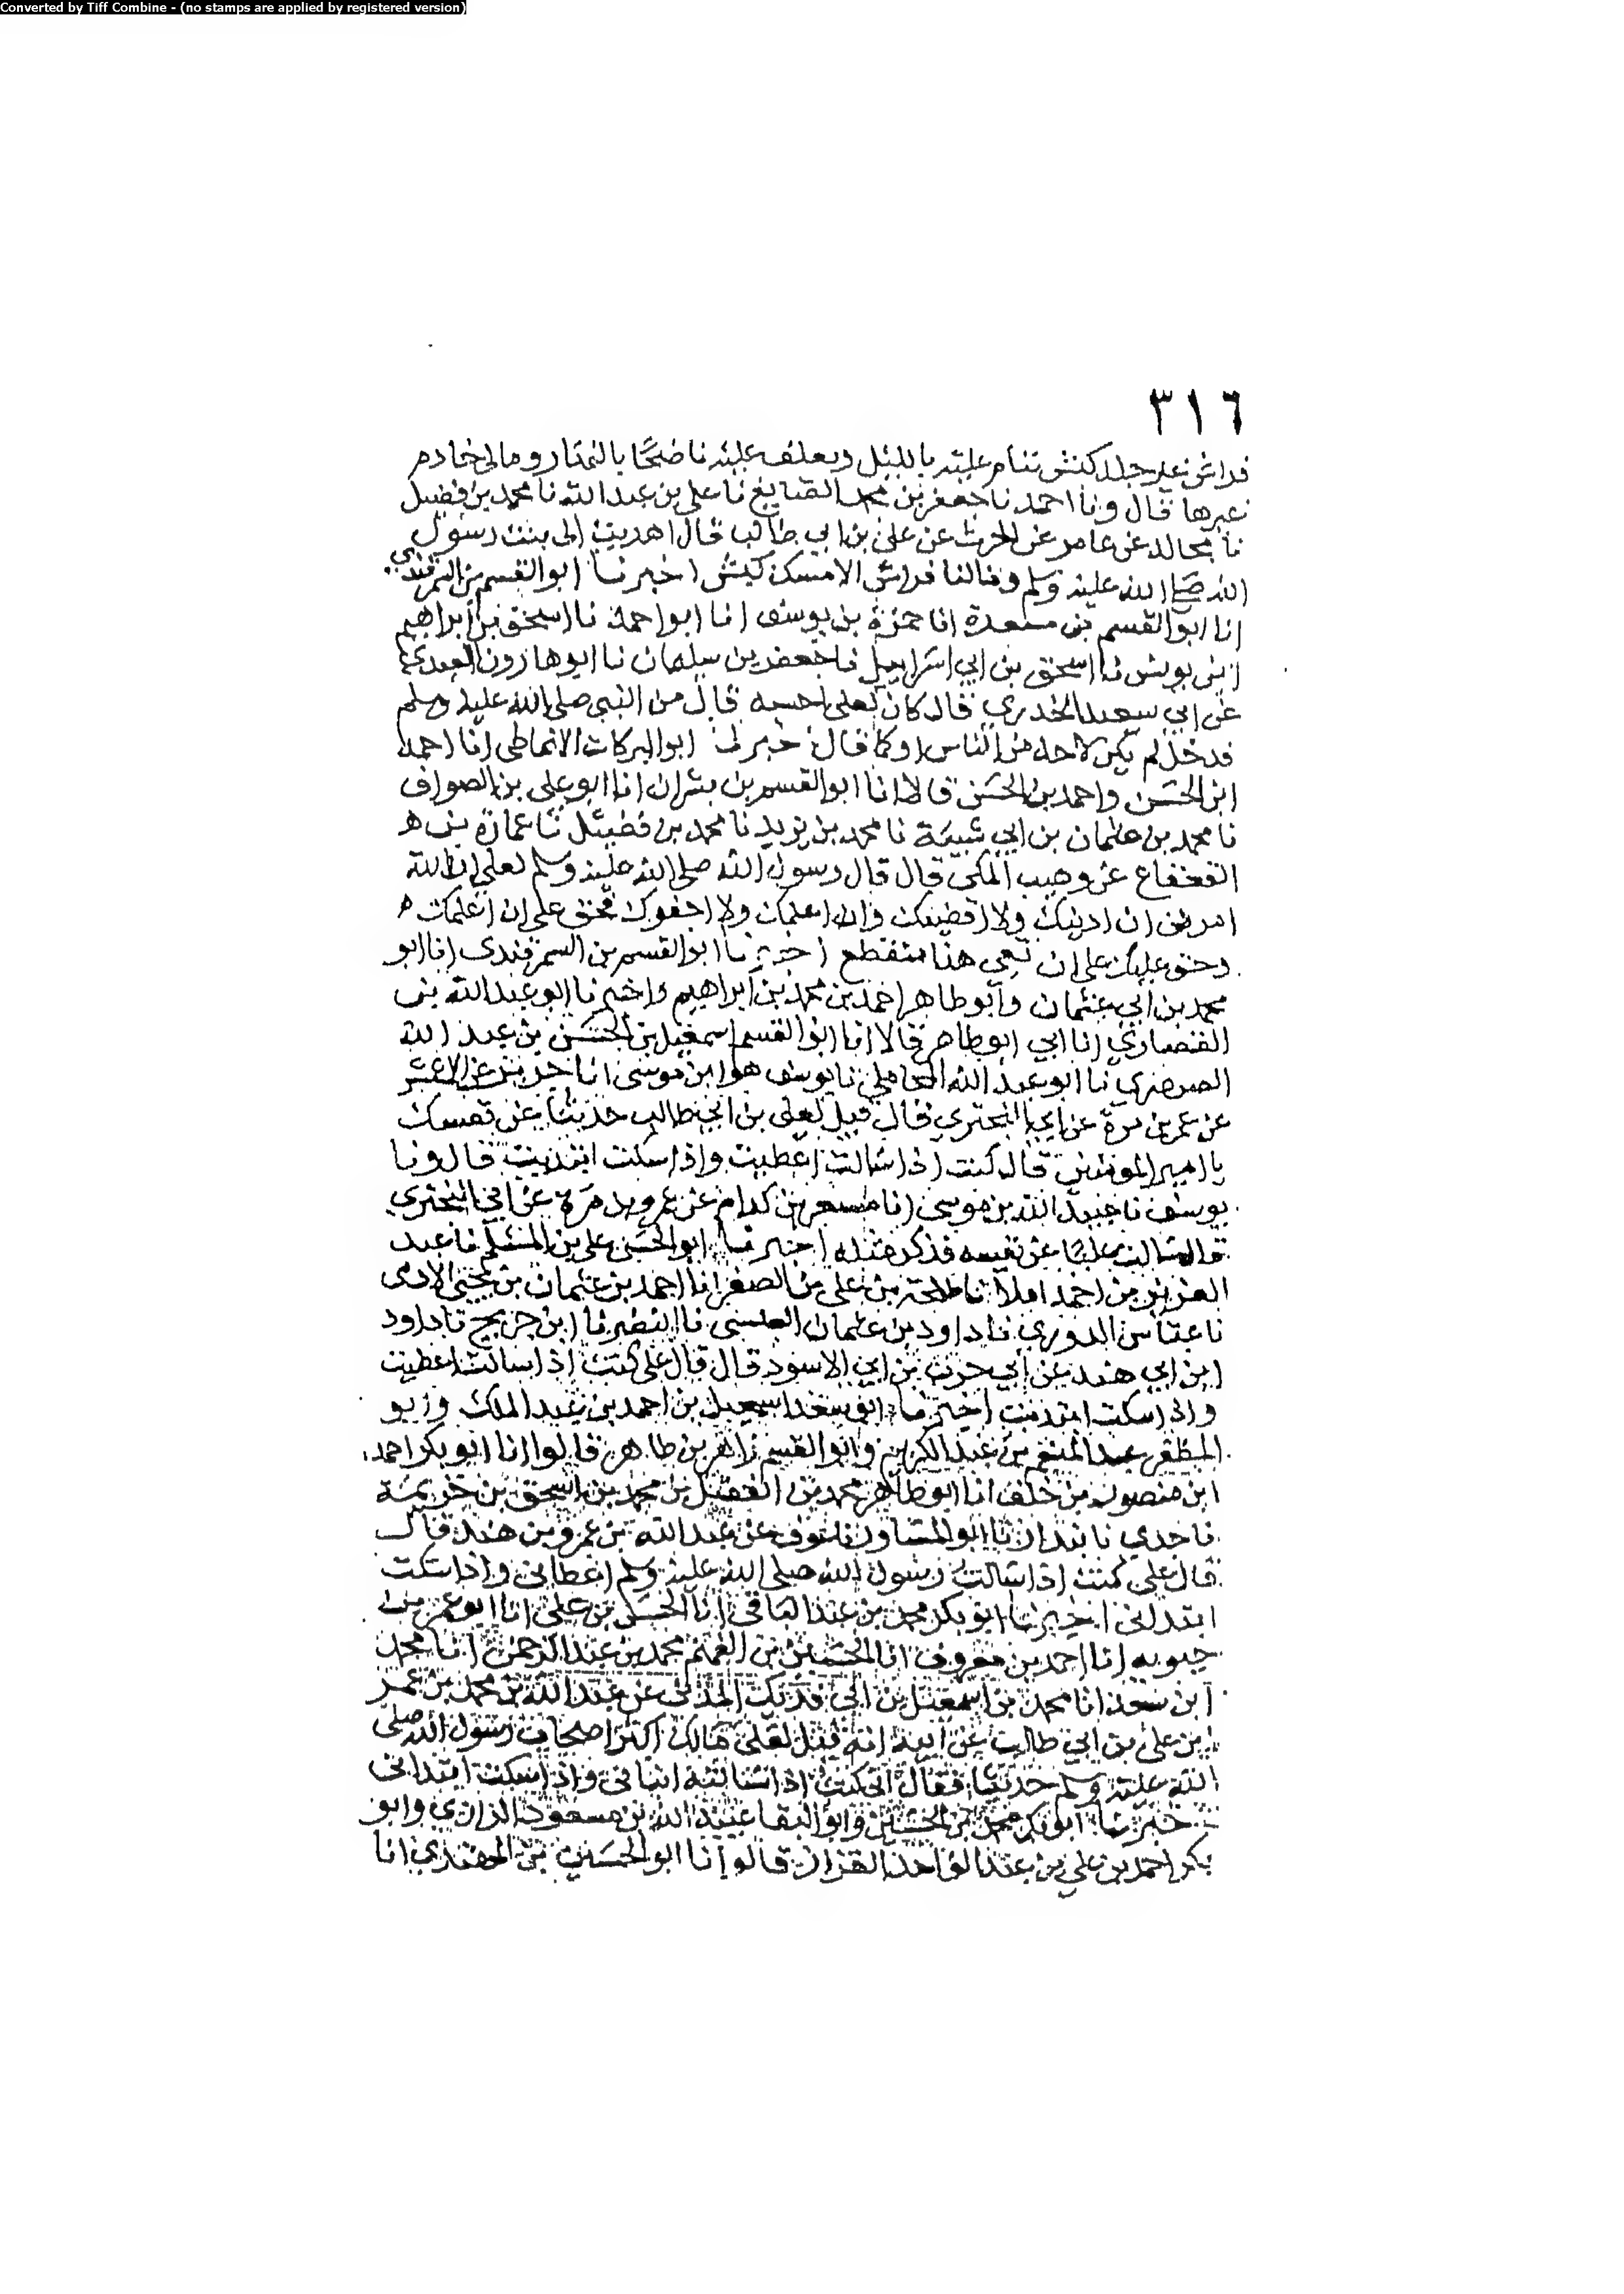 Converted by Tiff Combine - (no stamps are applied by registered version)
٣١٦
فراش غير جلد كبش ننام عليه بالليل ويعلف عليه ناضحا بالنهار ومالي خادم
غيرها قال ونا احمد نا جعفر بن محمد الصايغ نا علي بن عبد الله نا محمد بن فضيل
نا مجالد عن عامر عن الحرث عن علي بن ابي طالب قال اهديت الى بنت رسول
الله صلى الله عليه وسلم وما لنا فراش الا مسك كبش اخبرنا ابو القسم بن السمرقندي
انا ابو القسم بن مسعدة انا حمزة بن يوسف انا ابو احمد نا اسحق بن ابراهيم
ابن يونس نا اسحق بن ابي اسرايل نا جعفر بن سليمان نا ابو هارون العبدي
عن ابي سعيد الخدري قال كان لعلي احسبه قال من النبي صلى الله عليه وسلم
مدخل لم يكن لاحد من الناس او كما قال اخبرنا ابو البركات الانماطي انا احمد
ابن الحسن واحمد بن الحسن قالا انا ابو القسم بن بشران انا ابو علي بن الصواف
نا محمد بن عثمان بن ابي شيبة نا محمد بن يزيد نا محمد بن فضيل نا عمارة بن
القعقاع عن وهيب المكي قال قال رسول الله صلى الله عليه وسلم لعلي ان الله
امرني ان ادنيك ولا اقصيك وان اعلمك ولا اجفوك فحق علي ان اعلمك
وحق عليك علي ان تعي هذا منقطع اخبرنا ابو القسم بن السمرقندي انا ابو
محمد بن ابي عثمان وابو طاهر احمد بن محمد بن ابراهيم واخبرنا ابو عبد الله بن
القصاري انا ابي ابو طاهر قالا انا ابو القسم اسمعيل بن الحسن بن عبد الله
الصرصري نا ابو عبد الله المحاملي نا يوسف هو ابن موسى انا جرير عن الاعمش
عن عمر بن مرة عن ابي البختري قال قيل لعلي بن ابي طالب حدثنا عن نفسك
يا امير المومنين قال كنت اذا سالت اعطيت واذا سكت ابتديت قال ونا
يوسف نا عبيد الله بن موسى انا مسعر بن كدام عن عمرو بن مرة عن ابي البختري
قال سالت عليا عن نفسه فذكر مثله اخبرنا ابو الحسن علي بن المسلم نا عبد
العزيز بن احمد املا نا طلحة بن علي بن الصقر انا احمد بن عثمان بن يحيى الادمي
نا عباس الدوري نا داود بن عثمان نا النضر نا ابن جريج نا داود
ابن ابي هند عن ابي حرب بن ابي الاسود قال قال علي كنت اذا سالت اعطيت
واذا سكت ابتديت اخبرنا ابو سعد اسمعيل بن احمد بن عبد الملك وابو
المظفر عبد المنعم بن عبد الكريم وابو القسم زاهر بن طاهر قالوا انا ابو بكر احمد
ابن منصور بن خلف انا ابو طاهر محمد بن الفضل بن محمد بن اسحق بن خزيمة
نا جدي نا بندار نا ابو المساور نا عوف عن عبد الله بن عمرو بن هند قال
قال علي كنت اذا سالت رسول الله صلى الله عليه وسلم اعطاني واذا سكت
ابتداني اخبرنا ابو بكر محمد بن عبد الباقي انا الحسن بن علي انا ابو عمر بن
حيويه انا احمد بن معروف انا الحسين بن الفهم محمد بن عبد الرحمن انا محمد
ابن سعد انا محمد بن اسمعيل بن ابي فديك المدني عن عبد الله بن محمد بن عمر
ابن علي بن ابي طالب عن ابيه انه قيل لعلي مالك اكثر اصحاب رسول الله صلى
الله عليه وسلم حديثا فقال اني كنت اذا سالته انباني واذا سكت ابتداني
اخبرنا ابو بكر محمد بن الحسين وابو البقا عبيد الله بن مسعود الرازي وابو
بكر احمد بن علي بن عبد الواحد القزاز قالوا انا ابو الحسين بن المهتدي انا